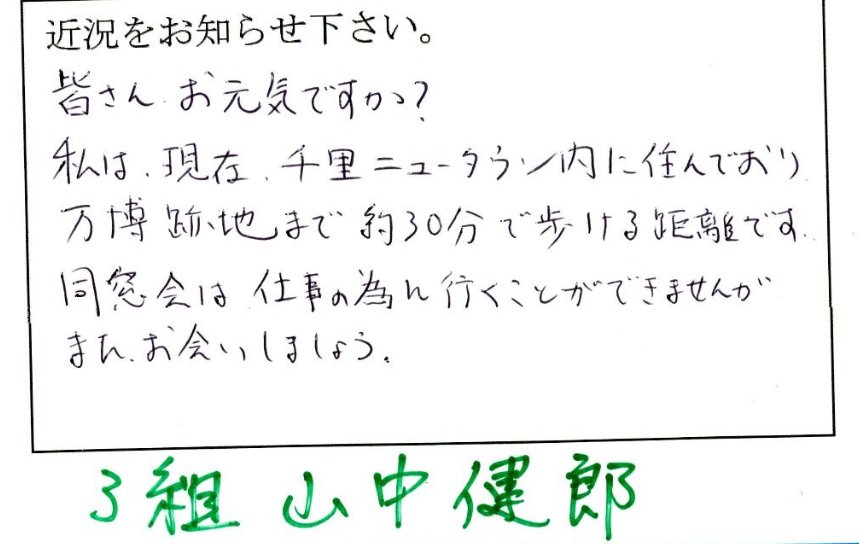 近況をお知らせ下さい。
皆さん、お元気ですか?
私は、現在、千里ニュータウン内に住んでおり
万博跡地まで約30分で歩ける距離です。
同窓会は仕事の為に行くことができませんが
また、お会いしましょう。
3組 山中健郎